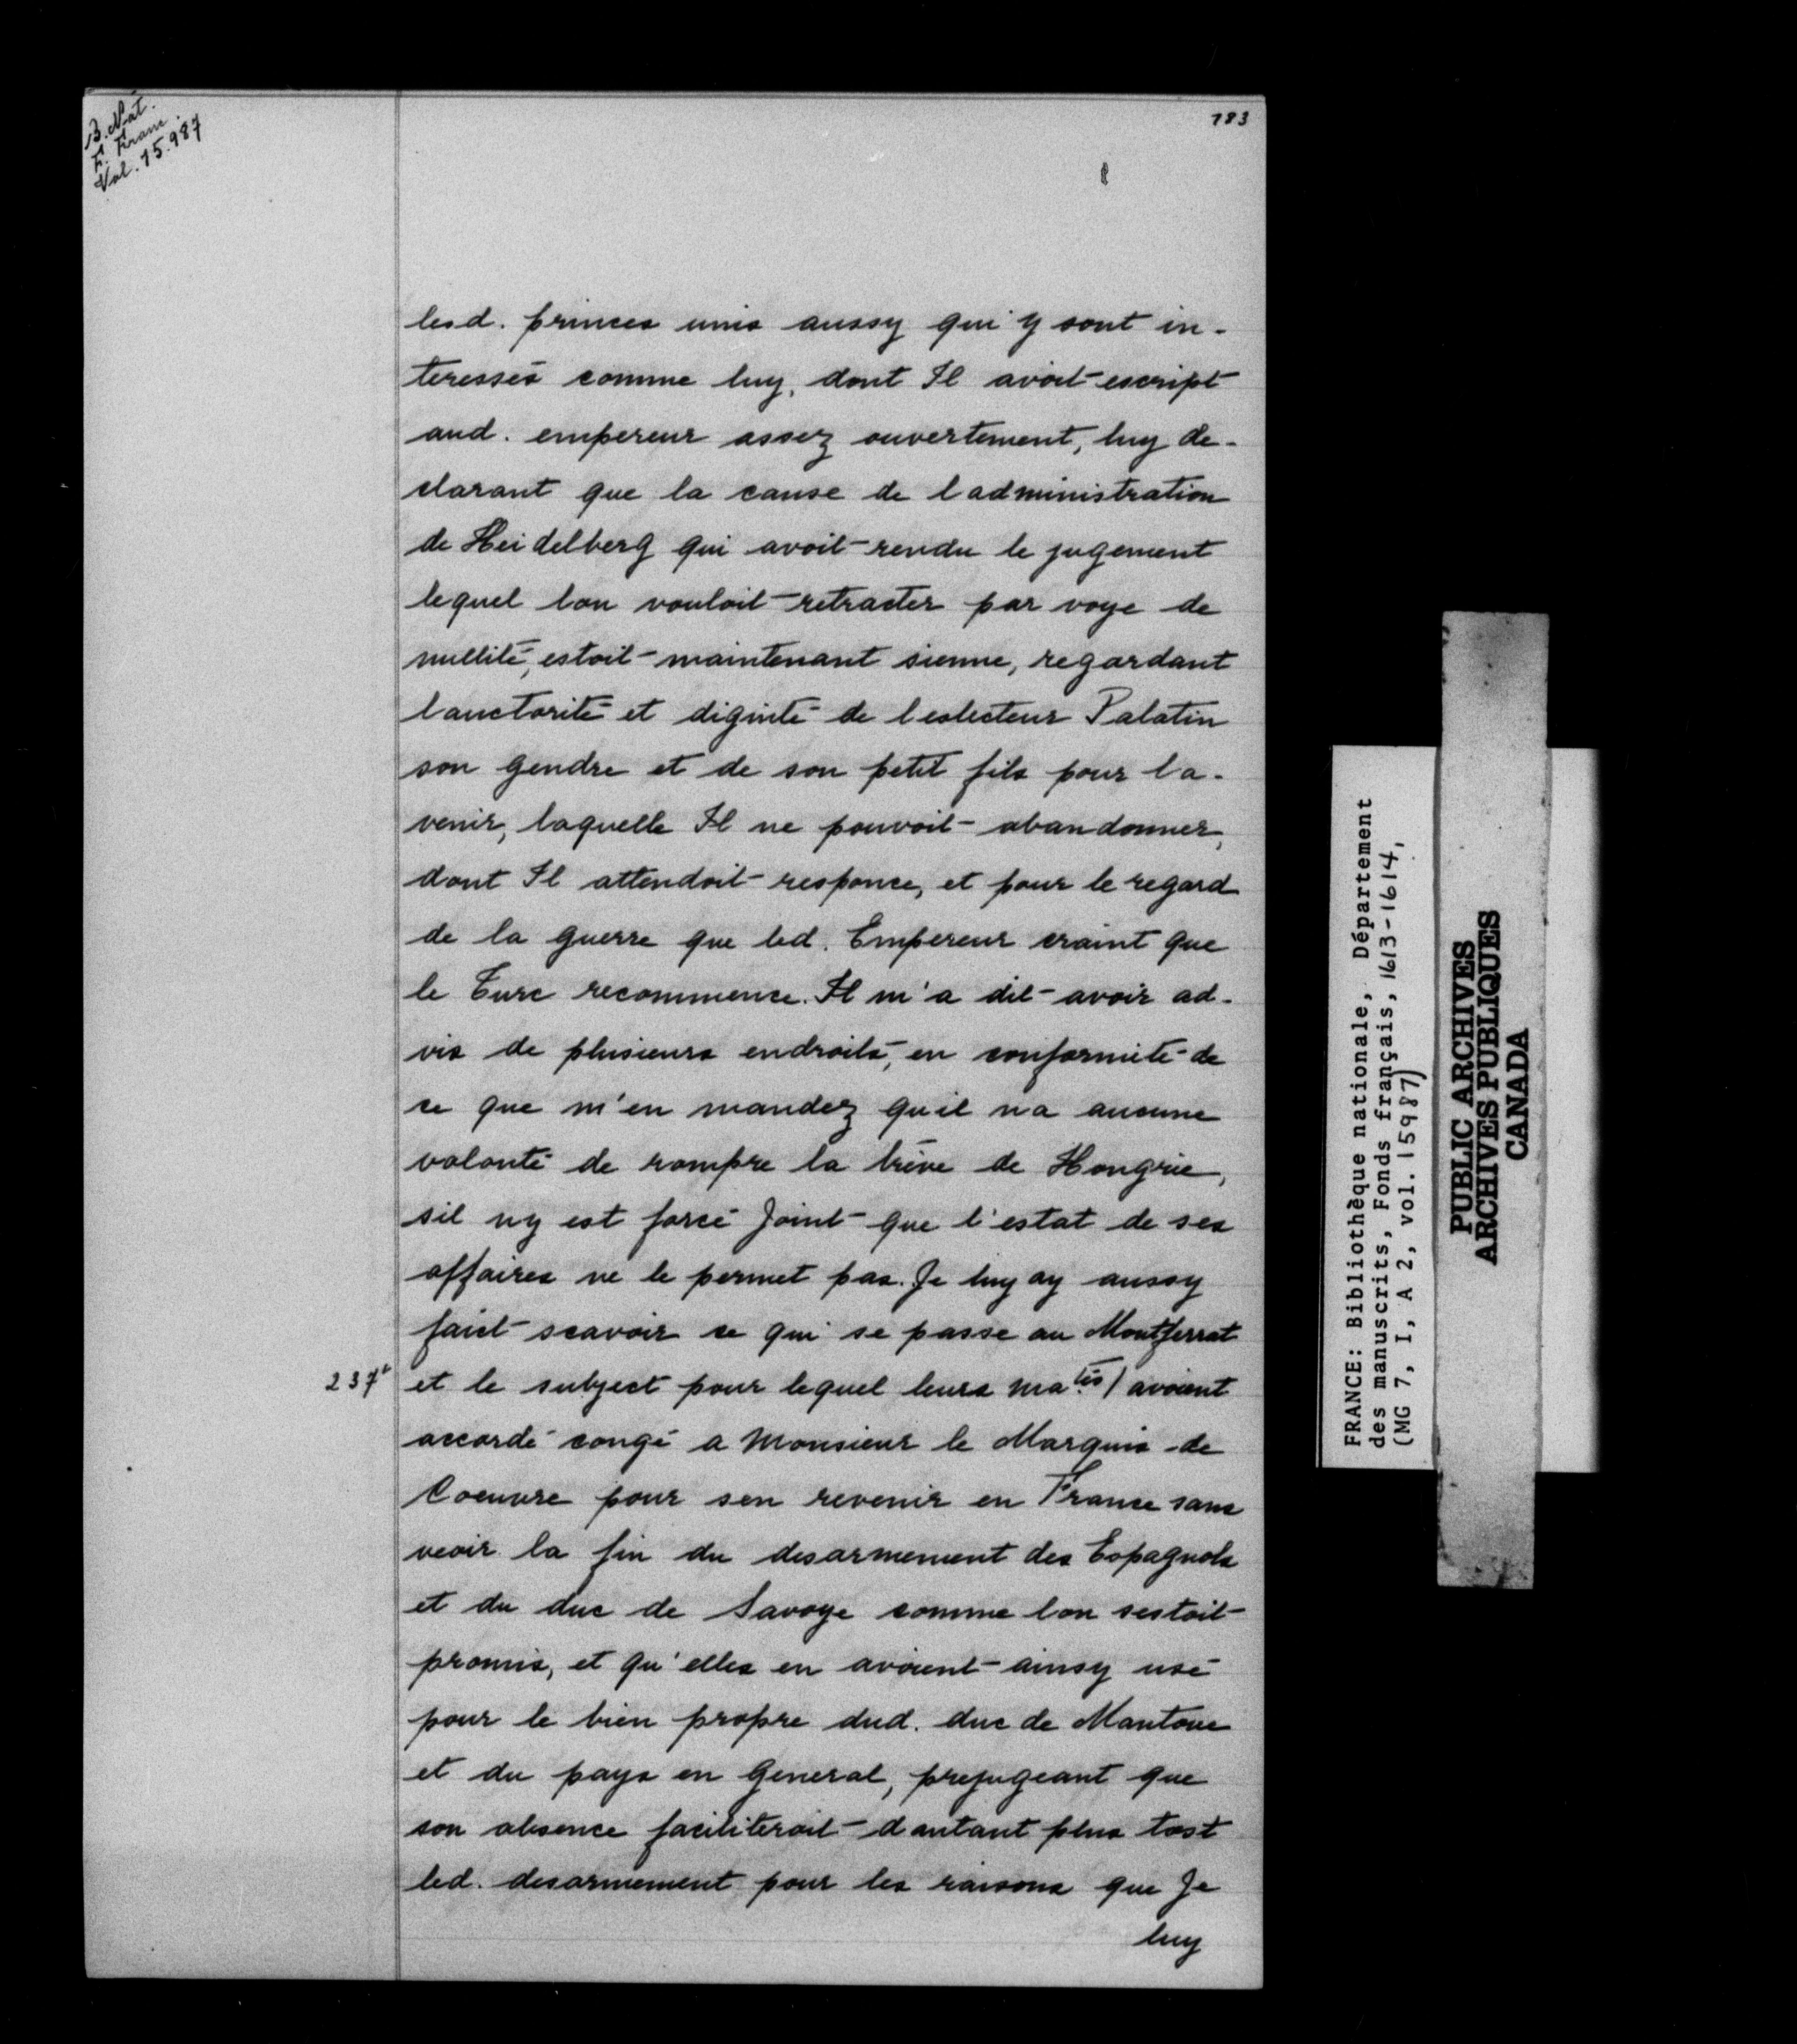 B. Nat.
F. Franc.
Vol. 15.987
183
lesd. princes unis aussy qui y sont in-
teressés comme luy, dont Il avoit escript
aud. empereur assez ouvertement, luy de-
clarant que la cause de l administration
de Heidelberg qui avoit rendu le jugement
lequel lon vouloit retracter par voye de
nullité, estoit maintenant sienne, regardant
lauctorité et diginté de l eslecteur Palatin
son gendre et de son petit fils pour la-
venir, laquelle Il ne pouvoit abandonner,
dont Il attendoit responce, et pour le regard
de la guerre que led. Empereur craint que
le Turc recommence. Il m'a dit avoir ad-
vis de plusieurs endroits, en conformité de
ce que m'en mandez quil na aucune
volonté de rompre la trève de Hongrie,
sil ny est forcé Joint que l'estat de ses
affaires ne le permet pas. Je luy ay aussy
faict scavoir ce qui se passe au Montferrat
237 et le subject pour lequel leurs ma.tés / avoient
accordé congé a Monsieur le Marquis de
Coeuvre pour sen revenir en France sans
veoir la fin du desarmement des Espagnols
et du duc de Savoye comme lon sestoit
promis, et qu'elles en avoient ainsy usé
pour le bien propre dud. duc de Mantoue
et du pays en general, prejugeant que
son absence faciliteroit dautant plus tost
led. desarmement pour les raisons que Je
luy
FRANCE: Bibliothèque nationale, Département
des manuscrits, Fonds français, 1613-1614,
(MG 7, I, A 2, vol. 15987)
PUBLIC ARCHIVES
ARCHIVES PUBLIQUES
CANADA